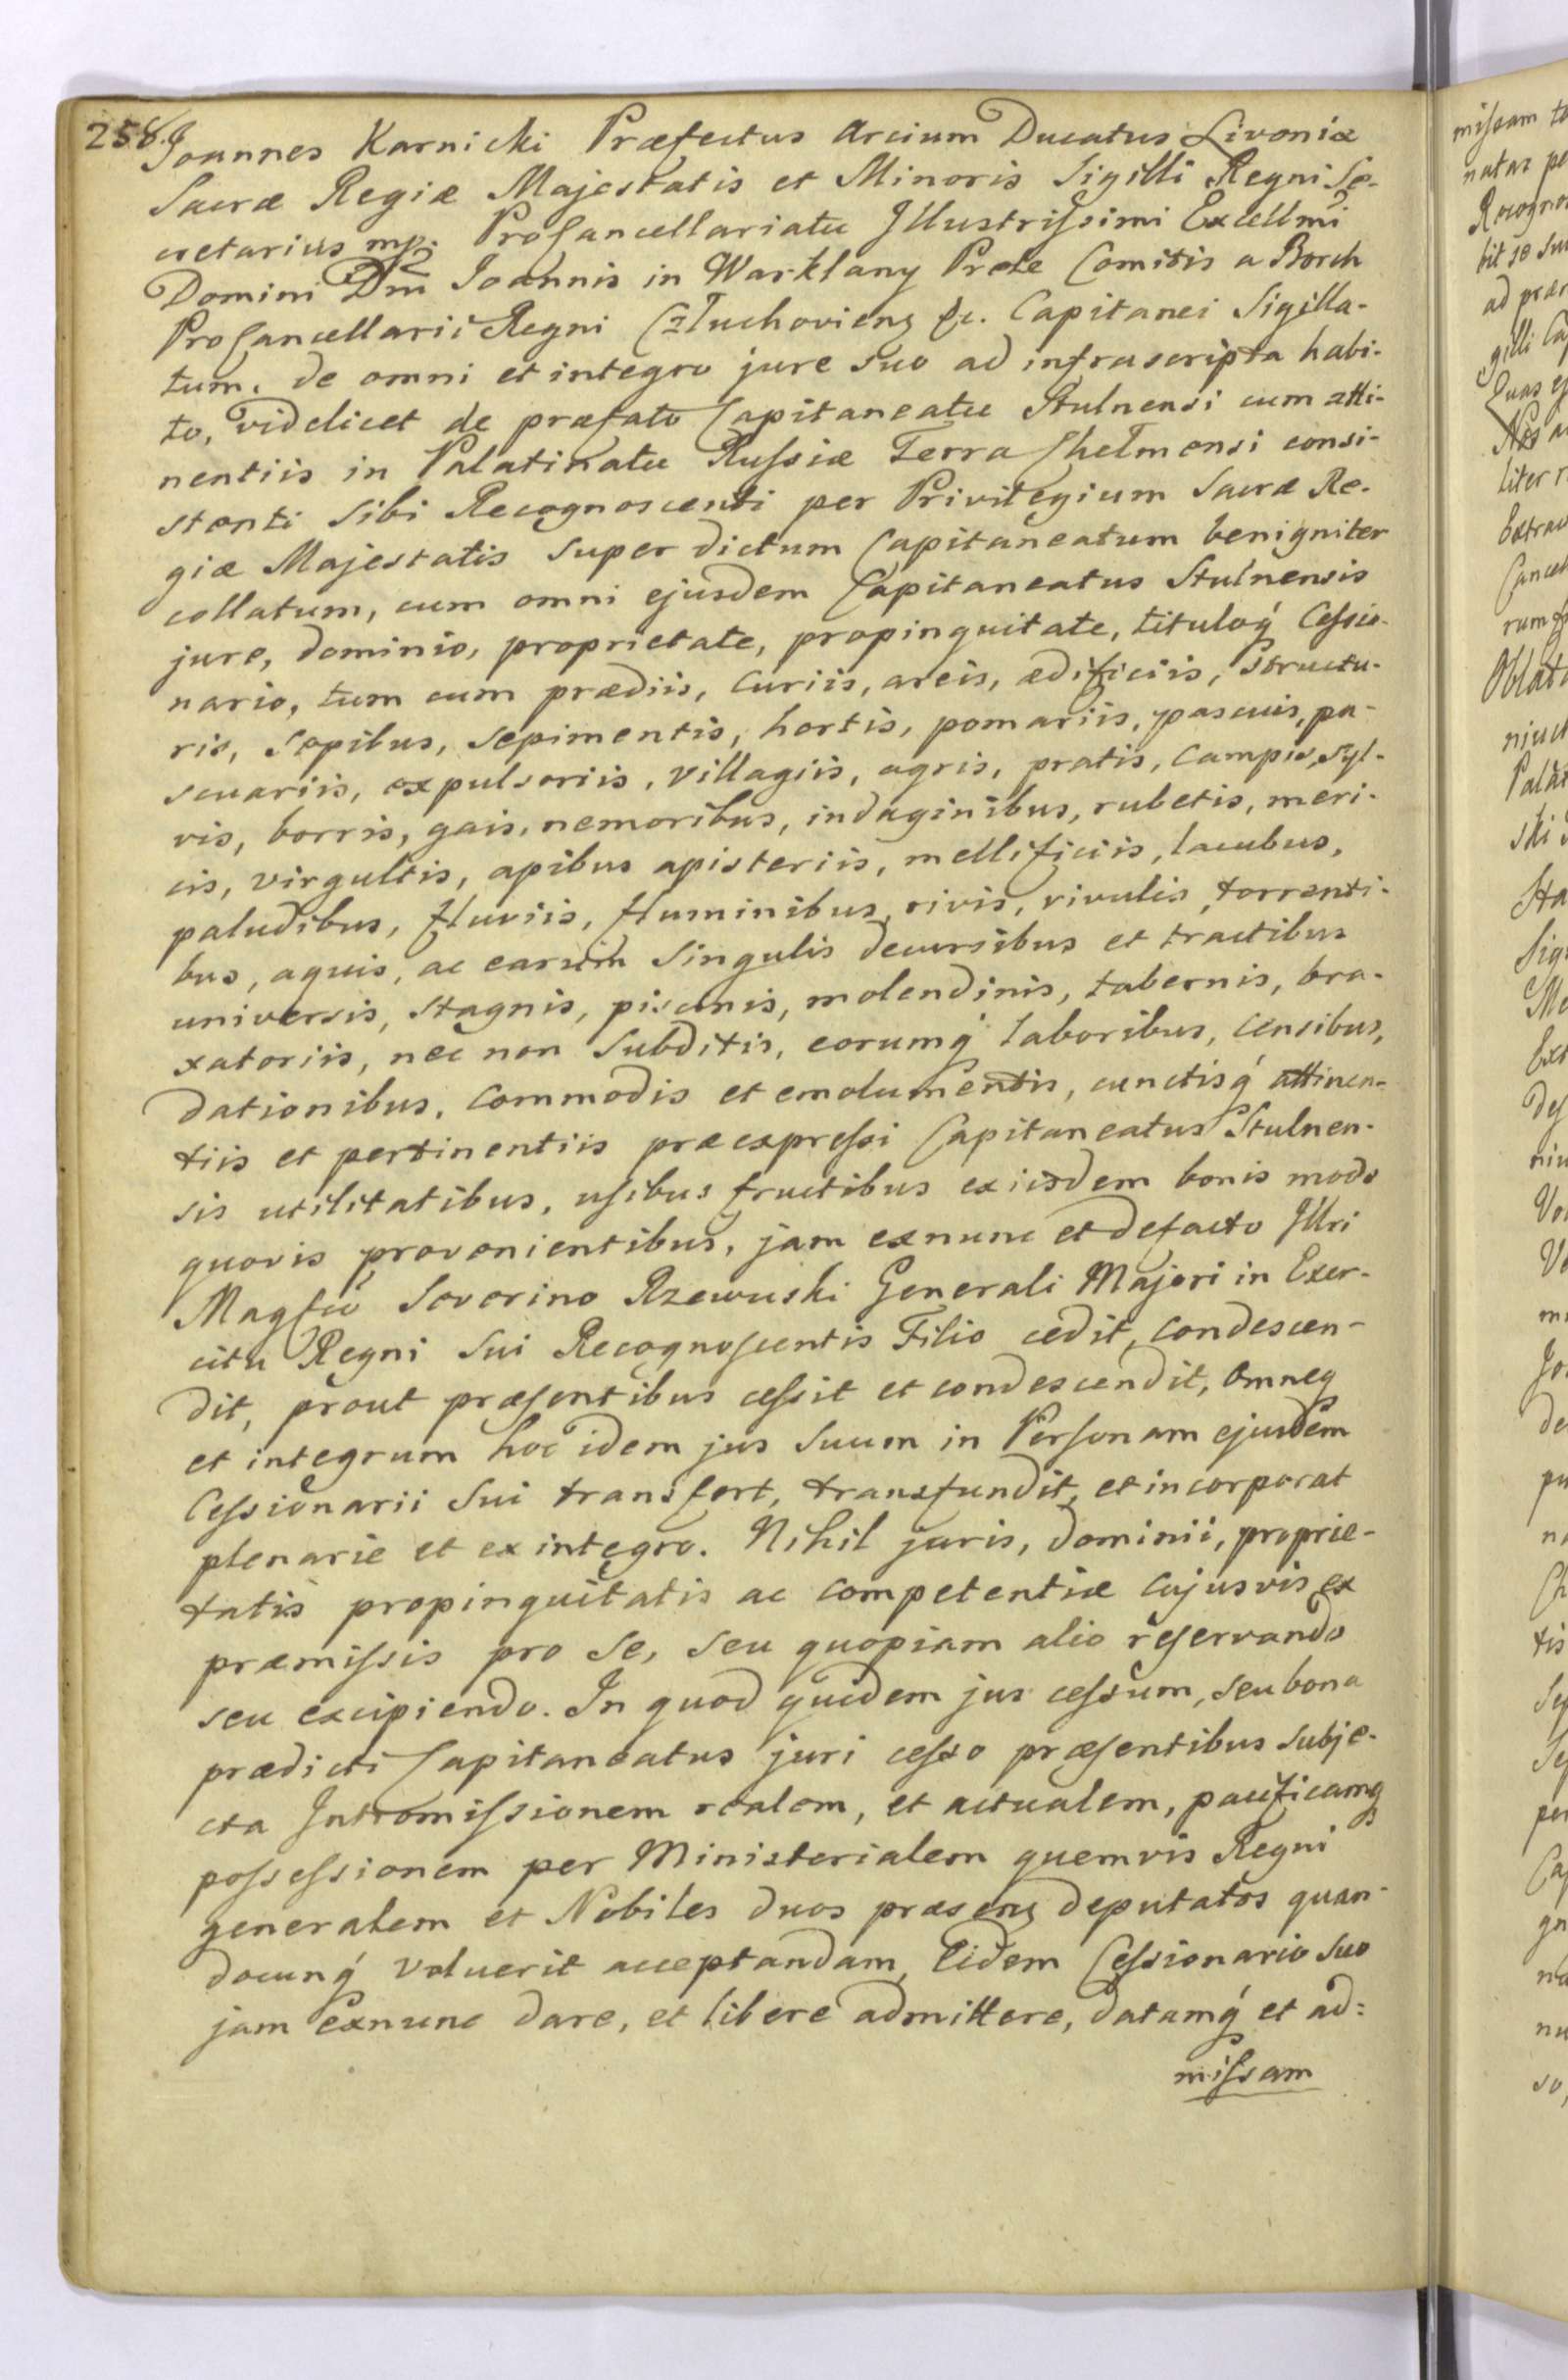 258.
Joannes Karnicki Præfectus Arcium Ducatus Livoniæ
Sacræ Regiæ Majestatis et Minoris Sigilli Regni Se-
cretarius mp. ProCancellariatu Jllustriſsimi Excellmi
Domini Dni Joannis in Warklany Prele Comitis a Borch
ProCancellarii Regni Człuchovienz &c. Capitanei Sigilla-
tum. de omni et integro jure suo ad infrascripta habi-
to, videlicet de præfato Capitaneatu Stulnensi cum atti-
nentiis in Palatinatu Ruſsiæ Terra Chelmensi consi-
stenti sibi Recognoscenti per Privilegium Sacræ Re-
giæ Majestatis super dictum Capitaneatum benigniter
collatum, cum omni ejusdem Capitaneatus Stulnensis
jure, dominio, proprietate, propinquitate, tituloq́ Ceſsio-
nario, tum cum prædiis, Curiis, areis, ædificiis, structu-
ris, sepibus, sepimentis, hortis, pomariis, pascuis, pa-
scuariis, expulsoriis, villagiis, agris, pratis, campis, syl-
vis, borris, gais, nemoribus, indaginibus, rubetis, meri-
cis, virgultis, apibus apisteriis, mellificiis, lacubus,
paludibus, fluviis, fluminibus, rivis, rivulis, torrenti-
bus, aquis, ac earum singulis decursibus et tractibus
universis, stagnis, piscinis, molendinis, tabernis, bra-
xatoriis, nec non Subditis, eorumq́ laboribus, censibus,
dationibus, commodis et emolumentis, cunctisq́ attinen-
tiis et pertinentiis præexpreſsi Capitaneatus Stulnen-
sis utilitatibus, uſibus fructibus ex iisdem bonis modo
quovis provenientibus, jam exnunc et defacto Jllri
Magfco Severino Rzewuski Generali Majori in Exer-
citu Regni Sui Recognoſcentis Filio cedit, condescen-
dit, prout præſentibus ceſsit et condescendit, omneq
et integrum hoc idem jus Suum in Perſonam ejusdem
Ceſsionarii Sui transfert, transfundit, et incorporat
plenarie et ex integro. Nihil juris, dominii, proprie-
tatis propinquitatis ac competentiæ cujusvis ex
præmiſsis pro se, seu quopiam alio reſervando
seu excipiendo. In quod quidem jus ceſsum, seu bona
prædicti Capitaneatus juri ceſso præſentibus subje-
cta Jntromiſsionem realem, et actualem, pacificamq
poſseſsionem per Ministerialem quemvis Regni
generalem et Nobiles duos præsenz deputatos quan-
docunq́ voluerit acceptandam, Eidem Ceſsionario suo
jam exnunc dare, et libere admittere, datamq́ et ad:
miſsam